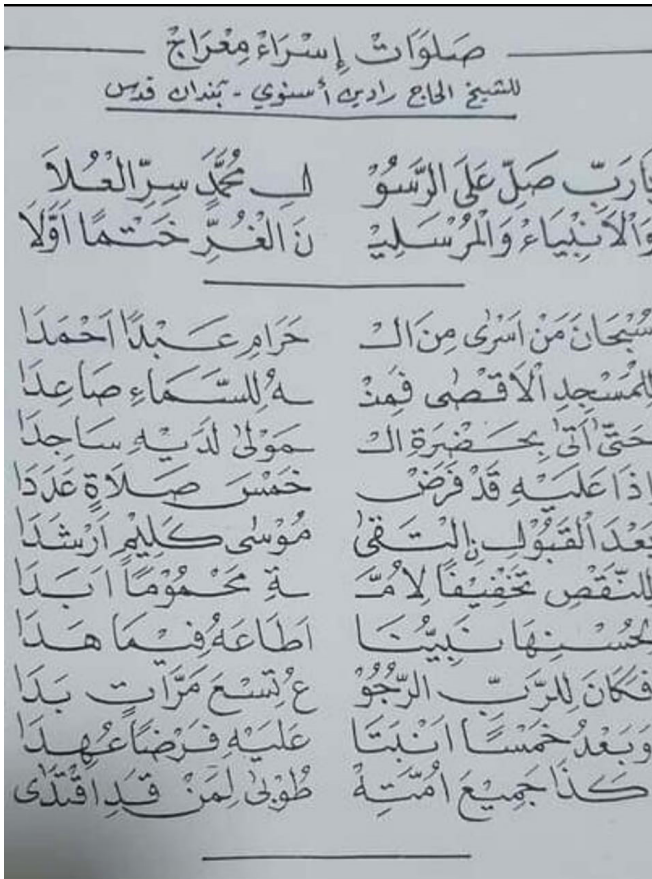 صَلَوَاتْ إِسْرَاءْ مِعْرَاجْ
للشيخ الحاج رادين أسنوي - بندان قدس
يَارَبِّ صَلِّ عَلَى الرَّسُوْ لِ مُحَمَّدٍ سِرِّ الْعُلَا
وَالْاَنْبِيَاءْ وَالْمُرْسَلِيْـ نَ الْغُرِّ خَتْمًا اَوَّلَا
سُبْحَانَ مَنْ اَسْرٰى مِنَ الْـ حَرَامِ عَبْدًا اَحْمَدَا
لِلْمَسْجِدِ الْاَقْصٰى فَمِنْـ ـهُ لِلسَّمَاءِ صَاعِدَا
حَتّٰى اَتٰى بِحَضْرَةِ الْـ ـمَوْلٰى لَدَيْهِ سَاجِدَا
اِذَا عَلَيْهِ قَدْ فَرَضْ خَمْسَ صَلَاةٍ عَدَدَا
بَعْدَ الْقَبُوْلِ نِالْتَقٰى مُوْسٰى كَلِيْمٍ اَرْشَدَا
لِلنَّقْصِ تَخْفِيْفًا لِاُمَّـ ـةِ مَحْمُوْمًا اَبَدَا
لِحُسْنِهَا نَبِيُّنَا اَطَاعَهُ فِيْمَا هَدَا
فَكَانَ لِلرَّبِّ الرُّجُوْ عُ تِسْعَ مَرَّاتٍ بَدَا
وَبَعْدُ خَمْسًا اَثْبَتَا عَلَيْهِ فَرْضًا عُهِدَا
كَذَا جَمِيْعَ اُمَّتِهْ طُوْبٰى لِمَنْ قَدِ اقْتَدٰى